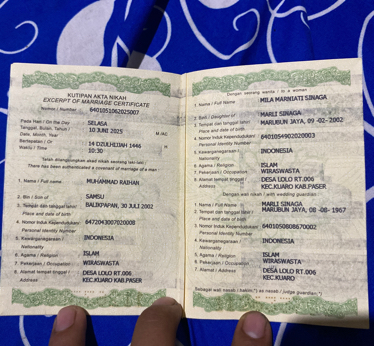 KUTIPAN AKTA NIKAH
EXCERPT OF MARRIAGE CERTIFICATE
Nomor / Number 6401051062025007
Pada Hari / On the Day SELASA
Tanggal, Bulan, Tahun / 10 JUNI 2025 M / AC
Date, Month, Year
Bertepatan / Or 14 DZULHIJJAH 1446 H
Waktu / Time 10:30
Telah dilangsungkan akad nikah seorang laki-laki :
There has been authenticated a covenant of marriage of a man
1. Nama / Full name MUHAMMAD RAIHAN
2. Bin / Son of SAMSU
3. Tempat dan tanggal lahir BALIKPAPAN, 30 JULI 2002
Place and date of birth
4. Nomor Induk Kependudukan 6472043007020008
Personal Identity Number
5. Kewarganegaraan / INDONESIA
Nationality
6. Agama / Religion ISLAM
7. Pekerjaan / Occupation WIRASWASTA
8. Alamat tempat tinggal / DESA LOLO RT.006
Address KEC.KUARO KAB.PASER
Dengan seorang wanita / to a women
1. Nama / Full Name MILA MARNIATI SINAGA
2. Binti / Daughter of MARLI SINAGA
3. Tempat dan tanggal lahir / MARUBUN JAYA, 09-02-2002
Place and date of birth
4. Nomor Induk Kependudukan/ 6401054902020003
Personal Identity Number
5. Kewarganegaraan / INDONESIA
Nationality
6. Agama / Religion ISLAM
7. Pekerjaan / Occupation WIRASWASTA
8. Alamat tempat tinggal / DESA LOLO RT.006
Address KEC.KUARO KAB.PASER
Dengan wali nikah / with wedding guardian
1. Nama / Full Name MARLI SINAGA
2. Tempat dan tanggal lahir / MARUBUN JAYA, 08-08-1967
Place and date of birth
3. Nomor Induk Kependudukan / 6401050808670002
Personal Identity Number
4. Kewarganegaraan / INDONESIA
Nationality
5. Agama / Religion ISLAM
6. Pekerjaan / Occupation WIRASWASTA
7. Alamat / Address DESA LOLO RT.006
KEC.KUARO
Sebagai wali nasab / hakim,*) as nasab / judge guardian,*)